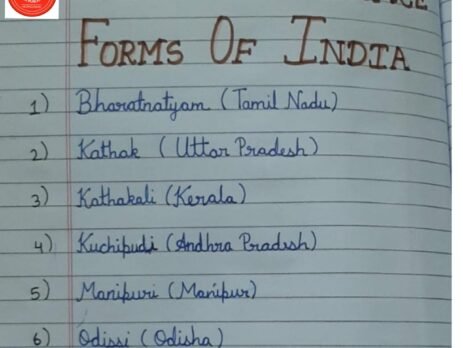 Forms Of India
1) Bharatnatyam (Tamil Nadu)
2) Kathak (Uttar Pradesh)
3) Kathakali (Kerala)
4) Kuchipudi (Andhra Pradesh)
5) Manipuri (Manipur)
6) Odissi (Odisha)